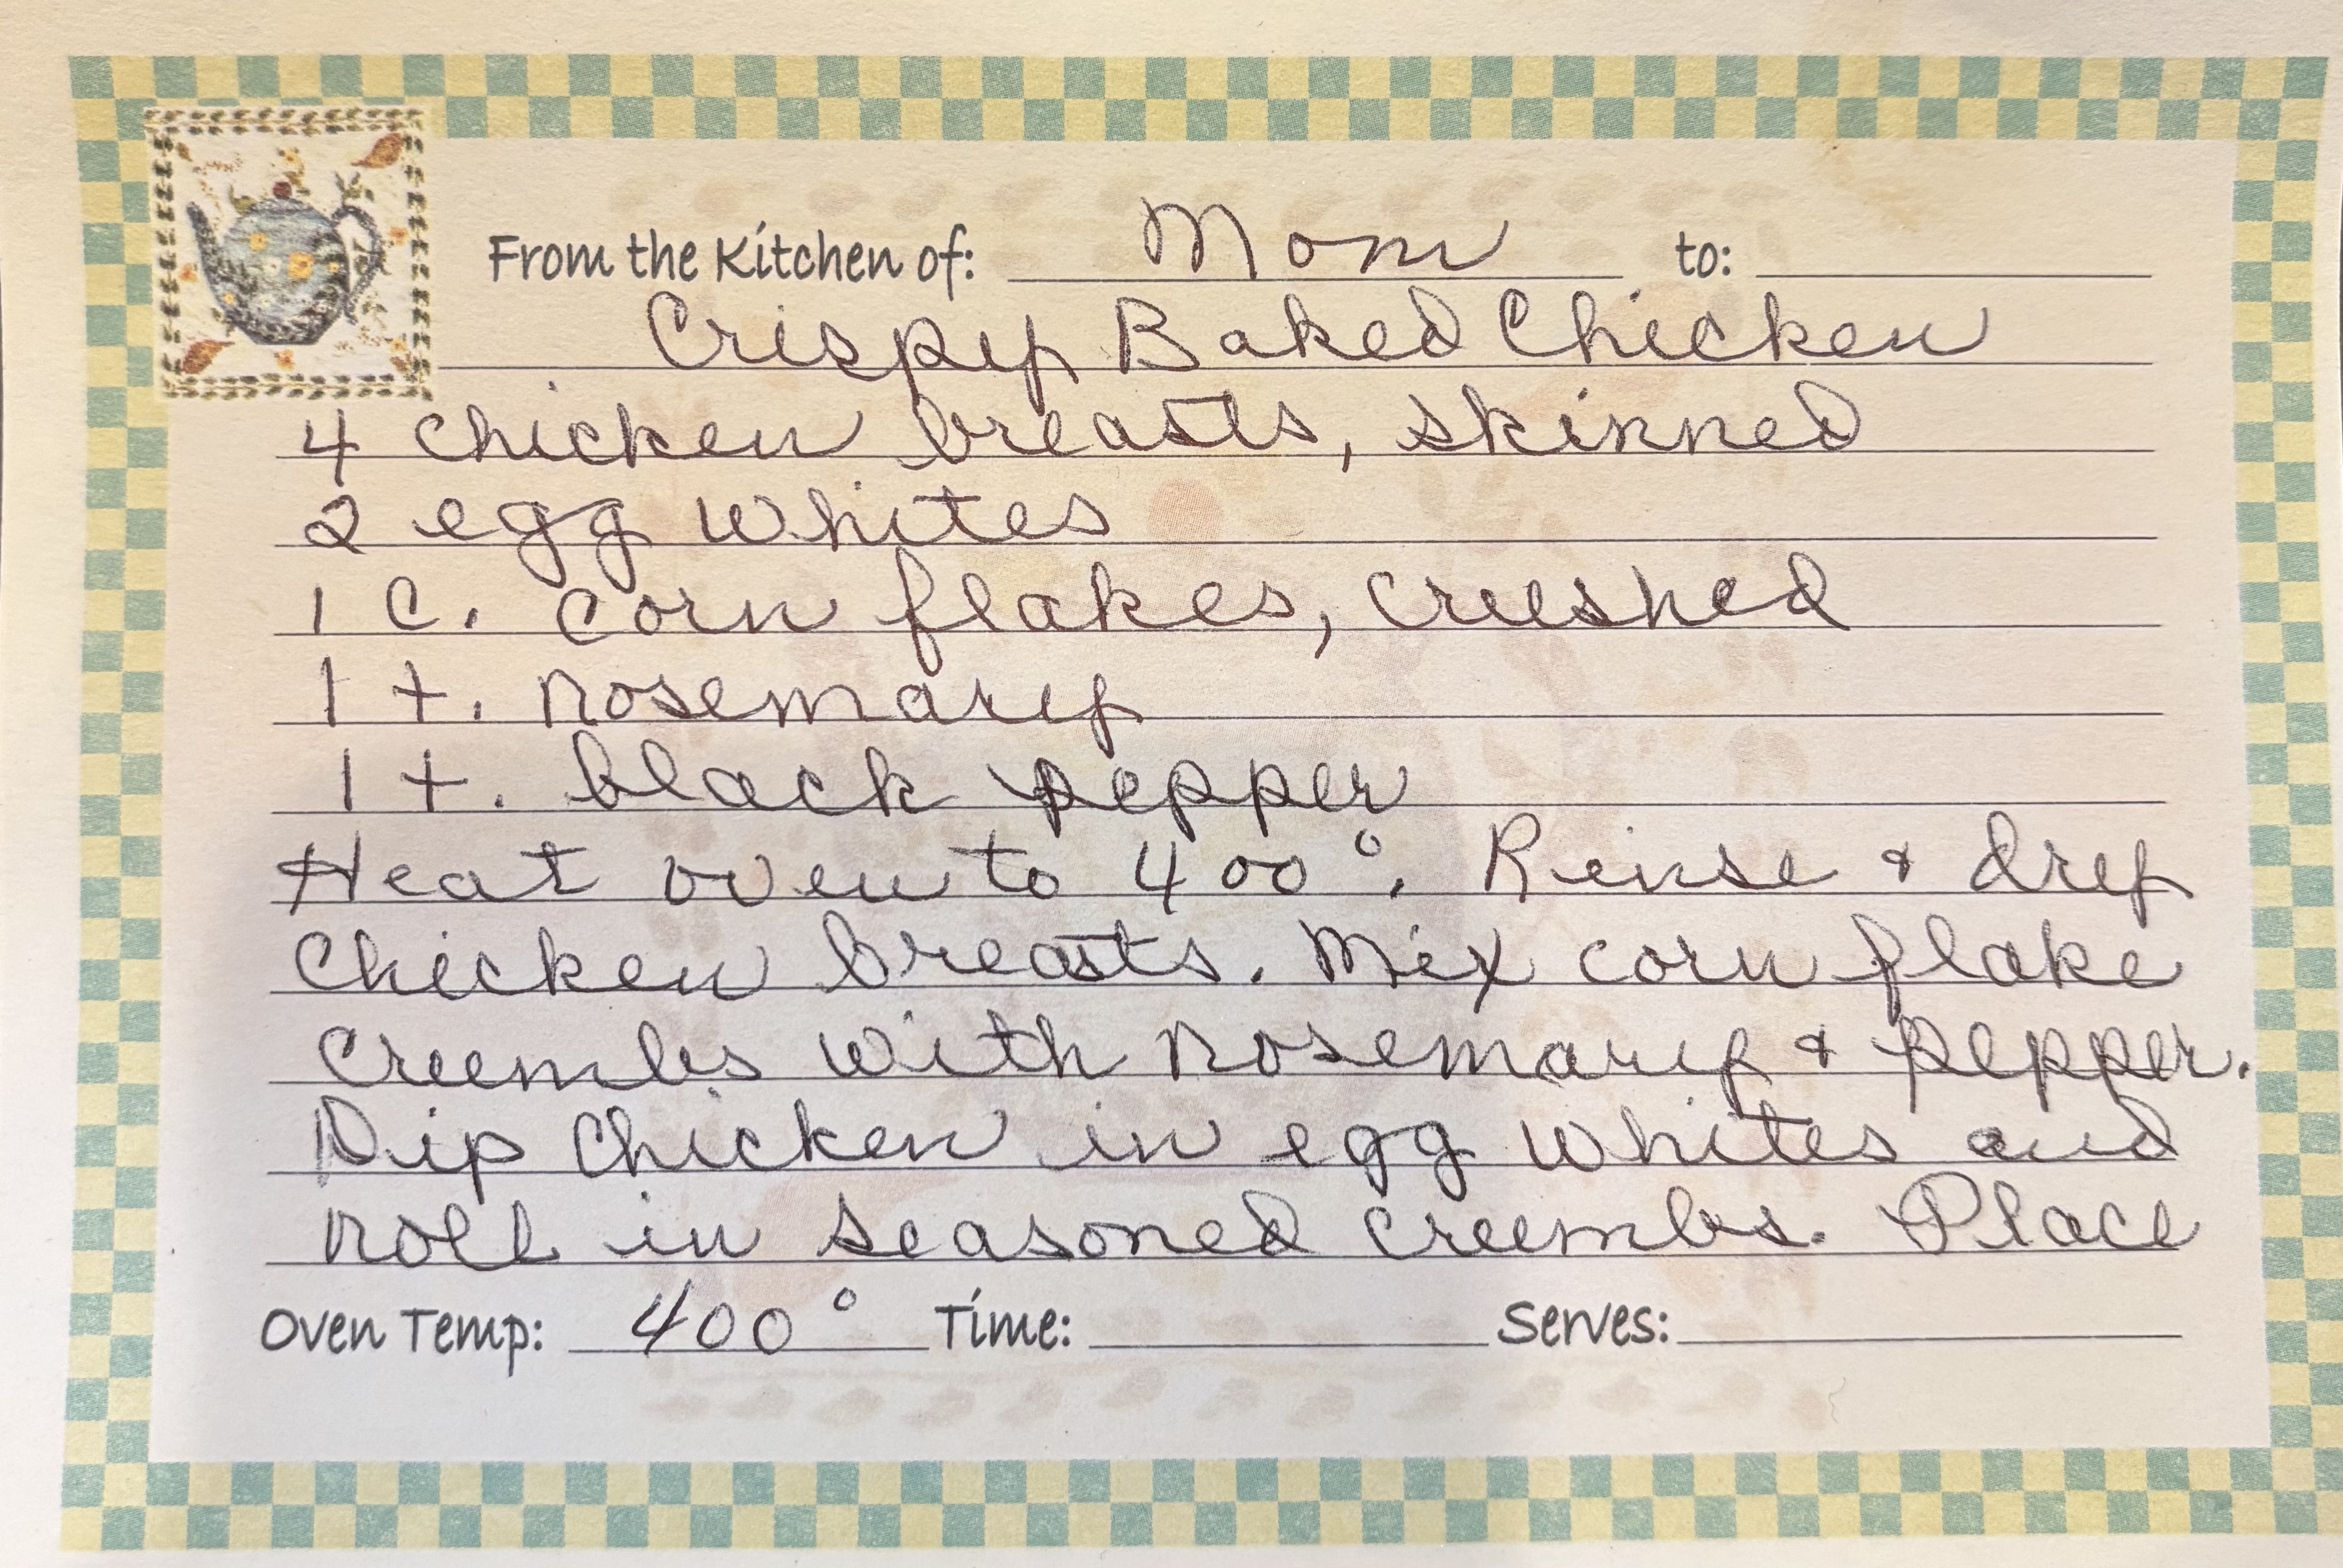 From the Kitchen of: Mom to:
Crispy Baked Chicken
4 chicken breasts, skinned
2 egg whites
1 c. corn flakes, crushed
1 t. rosemary
1 t. black pepper
Heat oven to 400°. Rinse & dry
chicken breasts. Mix corn flake
crumbs with rosemary & pepper.
Dip chicken in egg whites and
roll in seasoned crumbs. Place
Oven Temp: 400° Time: Serves: